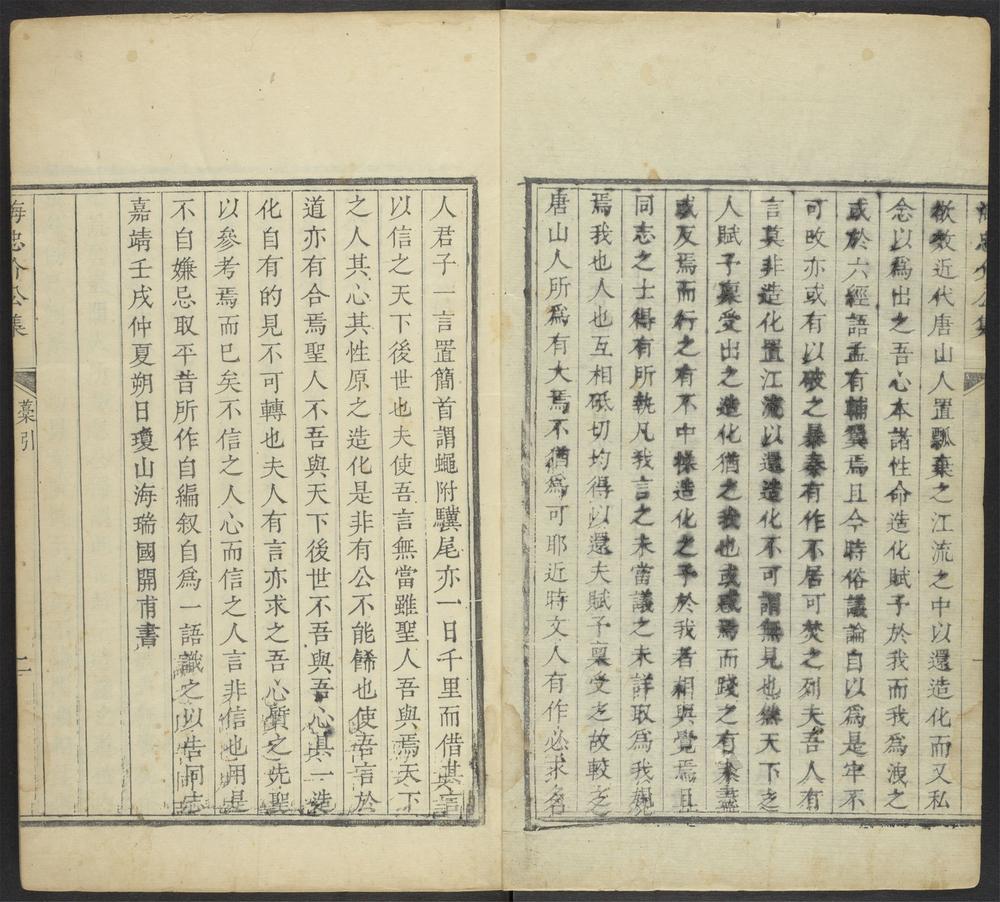 欲效近代唐山人置瓢棄之江流之中以還造化而又私
念以爲出之吾心本諸性命造化賦予於我而我爲洩之
或於六經語孟有輔翼焉且今時俗議論自以爲是牢不
可改亦或有以破之暴秦有作不居可焚之列夫吾人有
言莫非造化置江流以還造化不可謂無見也然天下之
人賦予稟受出之造化猶之我也或惑焉而踐之有未盡
或反焉而行之有不中悖造化之予於我者相與覺焉且
同志之士得有所執凡我言之未當議之未詳取爲我規
焉我也人也互相砥切均得以還夫賦予稟受之故較之
唐山人所爲有大焉不猶爲可耶近時文人有作必求名
人君子一言置簡首謂蠅附驥尾亦一日千里而借其言
以信之天下後世也夫使吾言無當雖聖人吾與焉天下
之人其心其性原之造化是非有公不能餙也使吾言於
道亦有合焉聖人不吾與天下後世不吾與吾心具一造
化自有的見不可轉也夫人有言亦求之吾心質之先聖
以參考焉而巳矣不信之人心而信之人言非信也用是
不自嫌忌取平昔所作自編叙自爲一語識之以告同志
嘉靖壬戌仲夏朔日瓊山海瑞國開甫書
海忠介公集
藁引
二